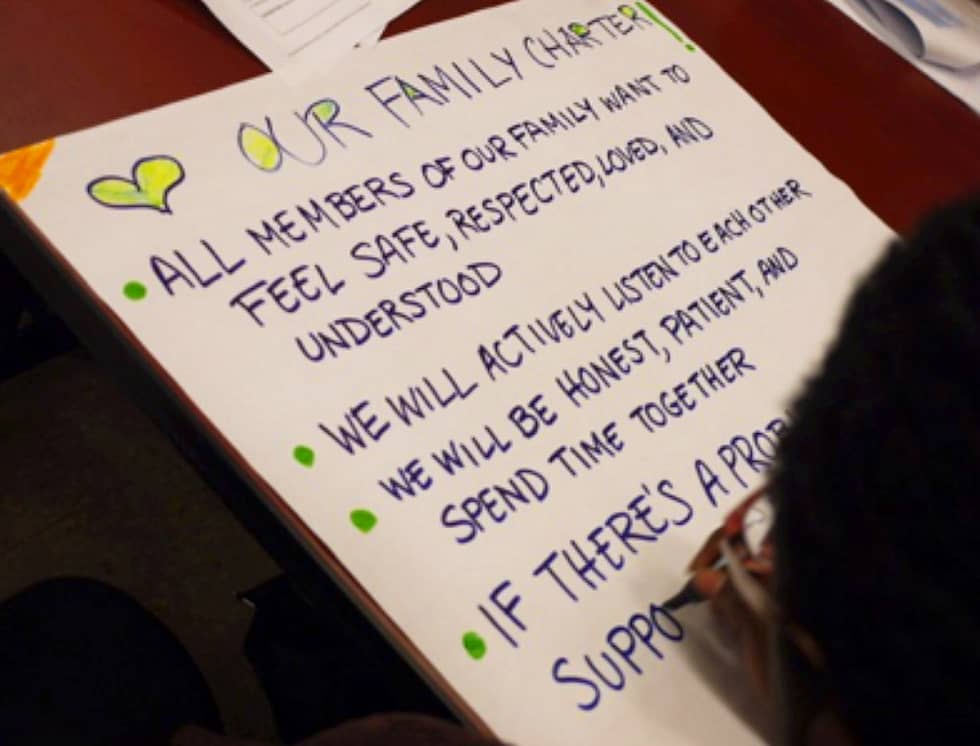 OUR FAMILY CHARTER!!
• ALL MEMBERS OF OUR FAMILY WANT TO
FEEL SAFE, RESPECTED, LOVED, AND
UNDERSTOOD
• WE WILL ACTIVELY LISTEN TO EACH OTHER
• WE WILL BE HONEST, PATIENT, AND
SPEND TIME TOGETHER
• IF THERE'S A PROB
SUPPO